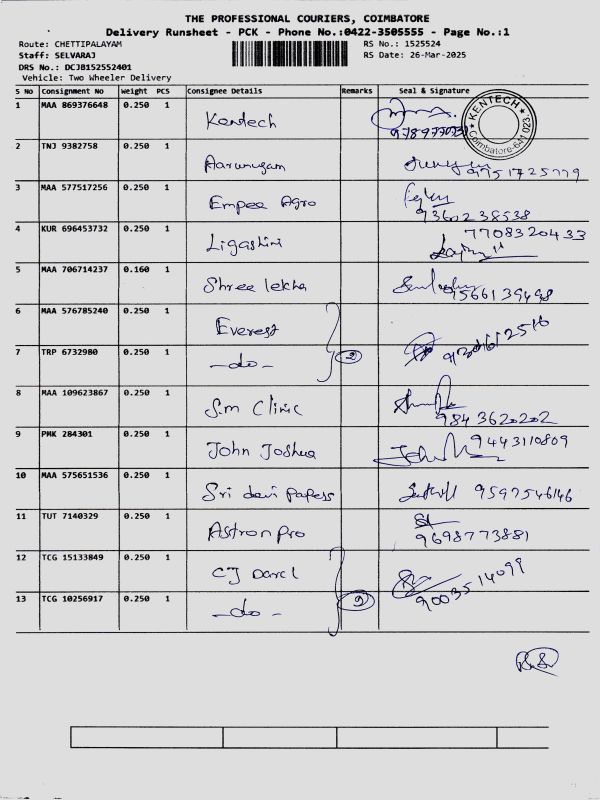 THE PROFESSIONAL COURIERS, COIMBATORE
Delivery Runsheet - PCK - Phone No.:0422-3505555 - Page No.:1
Route: CHETTIPALAYAM
Staff: SELVARAJ
DRS No.: DCJB152552401
Vehicle: Two Wheeler Delivery
RS No.: 1525524
RS Date: 26-Mar-2025
S No Consignment No Weight PCS Consignee Details Remarks Seal & Signature
1 MAA 869376648 0.250 1 Kentech
KENTECH Coimbatore-641 023
2 TNJ 9382758 0.250 1 Aarumugam 9751725779
3 MAA 577517256 0.250 1 Empee Agro 9360238538
4 KUR 696453732 0.250 1 Ligashini 7708320433
5 MAA 706714237 0.160 1 Shree lekha 9566139498
6 MAA 576785240 0.250 1 Everest
7 TRP 6732980 0.250 1 -do- 2
8 MAA 109623867 0.250 1 S.m Clinic 9843620202
9 PMK 284301 0.250 1 John Joshua 9443110809
10 MAA 575651536 0.250 1 Sri devi papers 9597546146
11 TUT 7140329 0.250 1 Astron pro 9698773881
12 TCG 15133849 0.250 1 CJ Darcl 9003514099
13 TCG 10256917 0.250 1 -do- 2